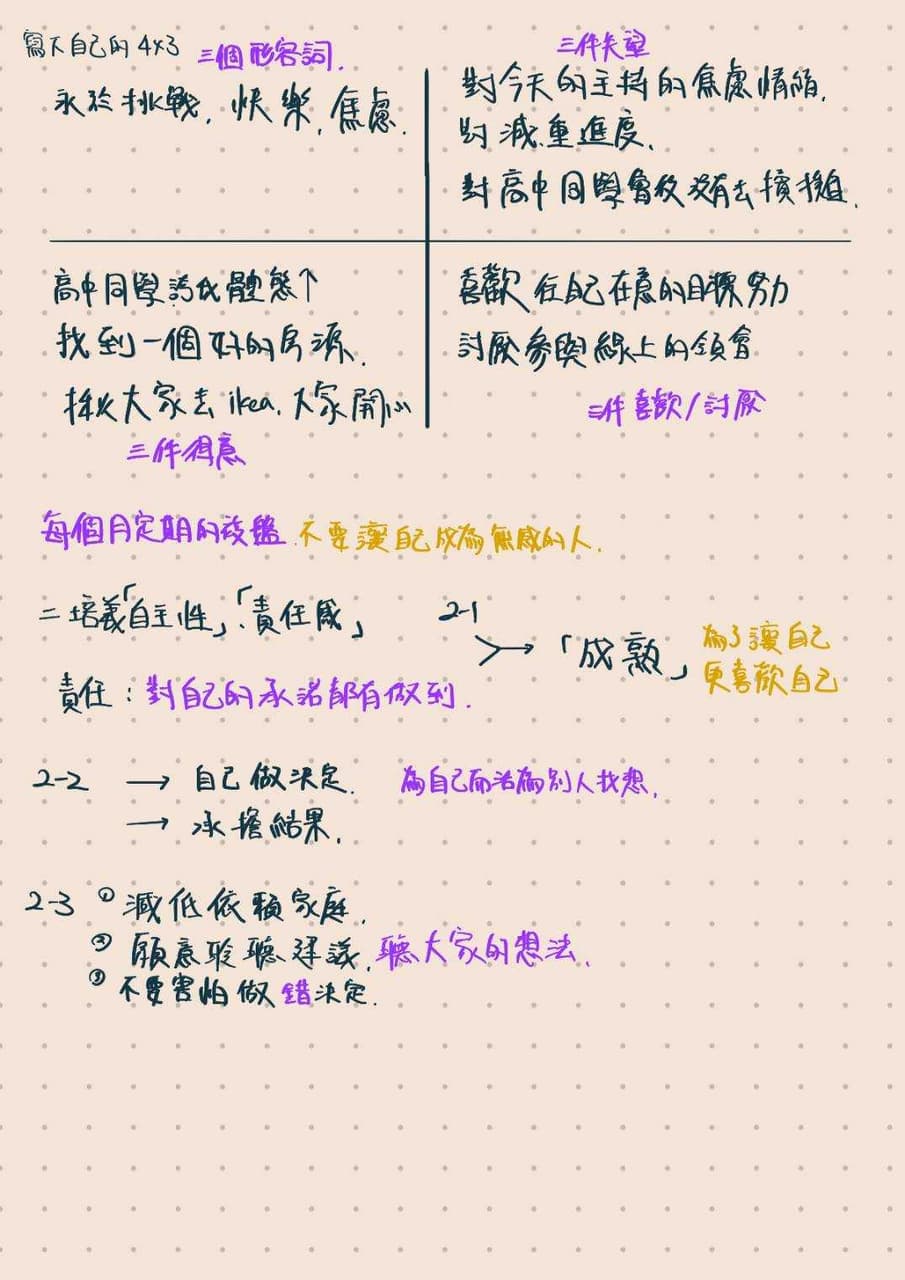 寫下自己的 4x3
三個形容詞.
永於挑戰, 快樂, 焦慮.
三件失望
對今天的主持的焦慮情緒.
對減重進度.
對高中同學會後沒有去擯攤.
高中同學誇我體態↑
找到一個好的房源.
揪大家去 ikea. 大家開心
三件得意
喜歡 在自己在意的目標努力
討厭參與線上的領會
三件喜歡/討厭
每個月定期的複盤 不要讓自己成為無感的人.
二 培養「自主性」、「責任感」
責任: 對自己的承諾都有做到.
2-1
→ 「成熟」
為了讓自己
更喜歡自己
2-2 → 自己做決定. 為自己而活為別人找想.
→ 承擔結果.
2-3 ① 減低依賴家庭.
② 願意聆聽建議. 聽大家的想法.
③ 不要害怕做錯決定.